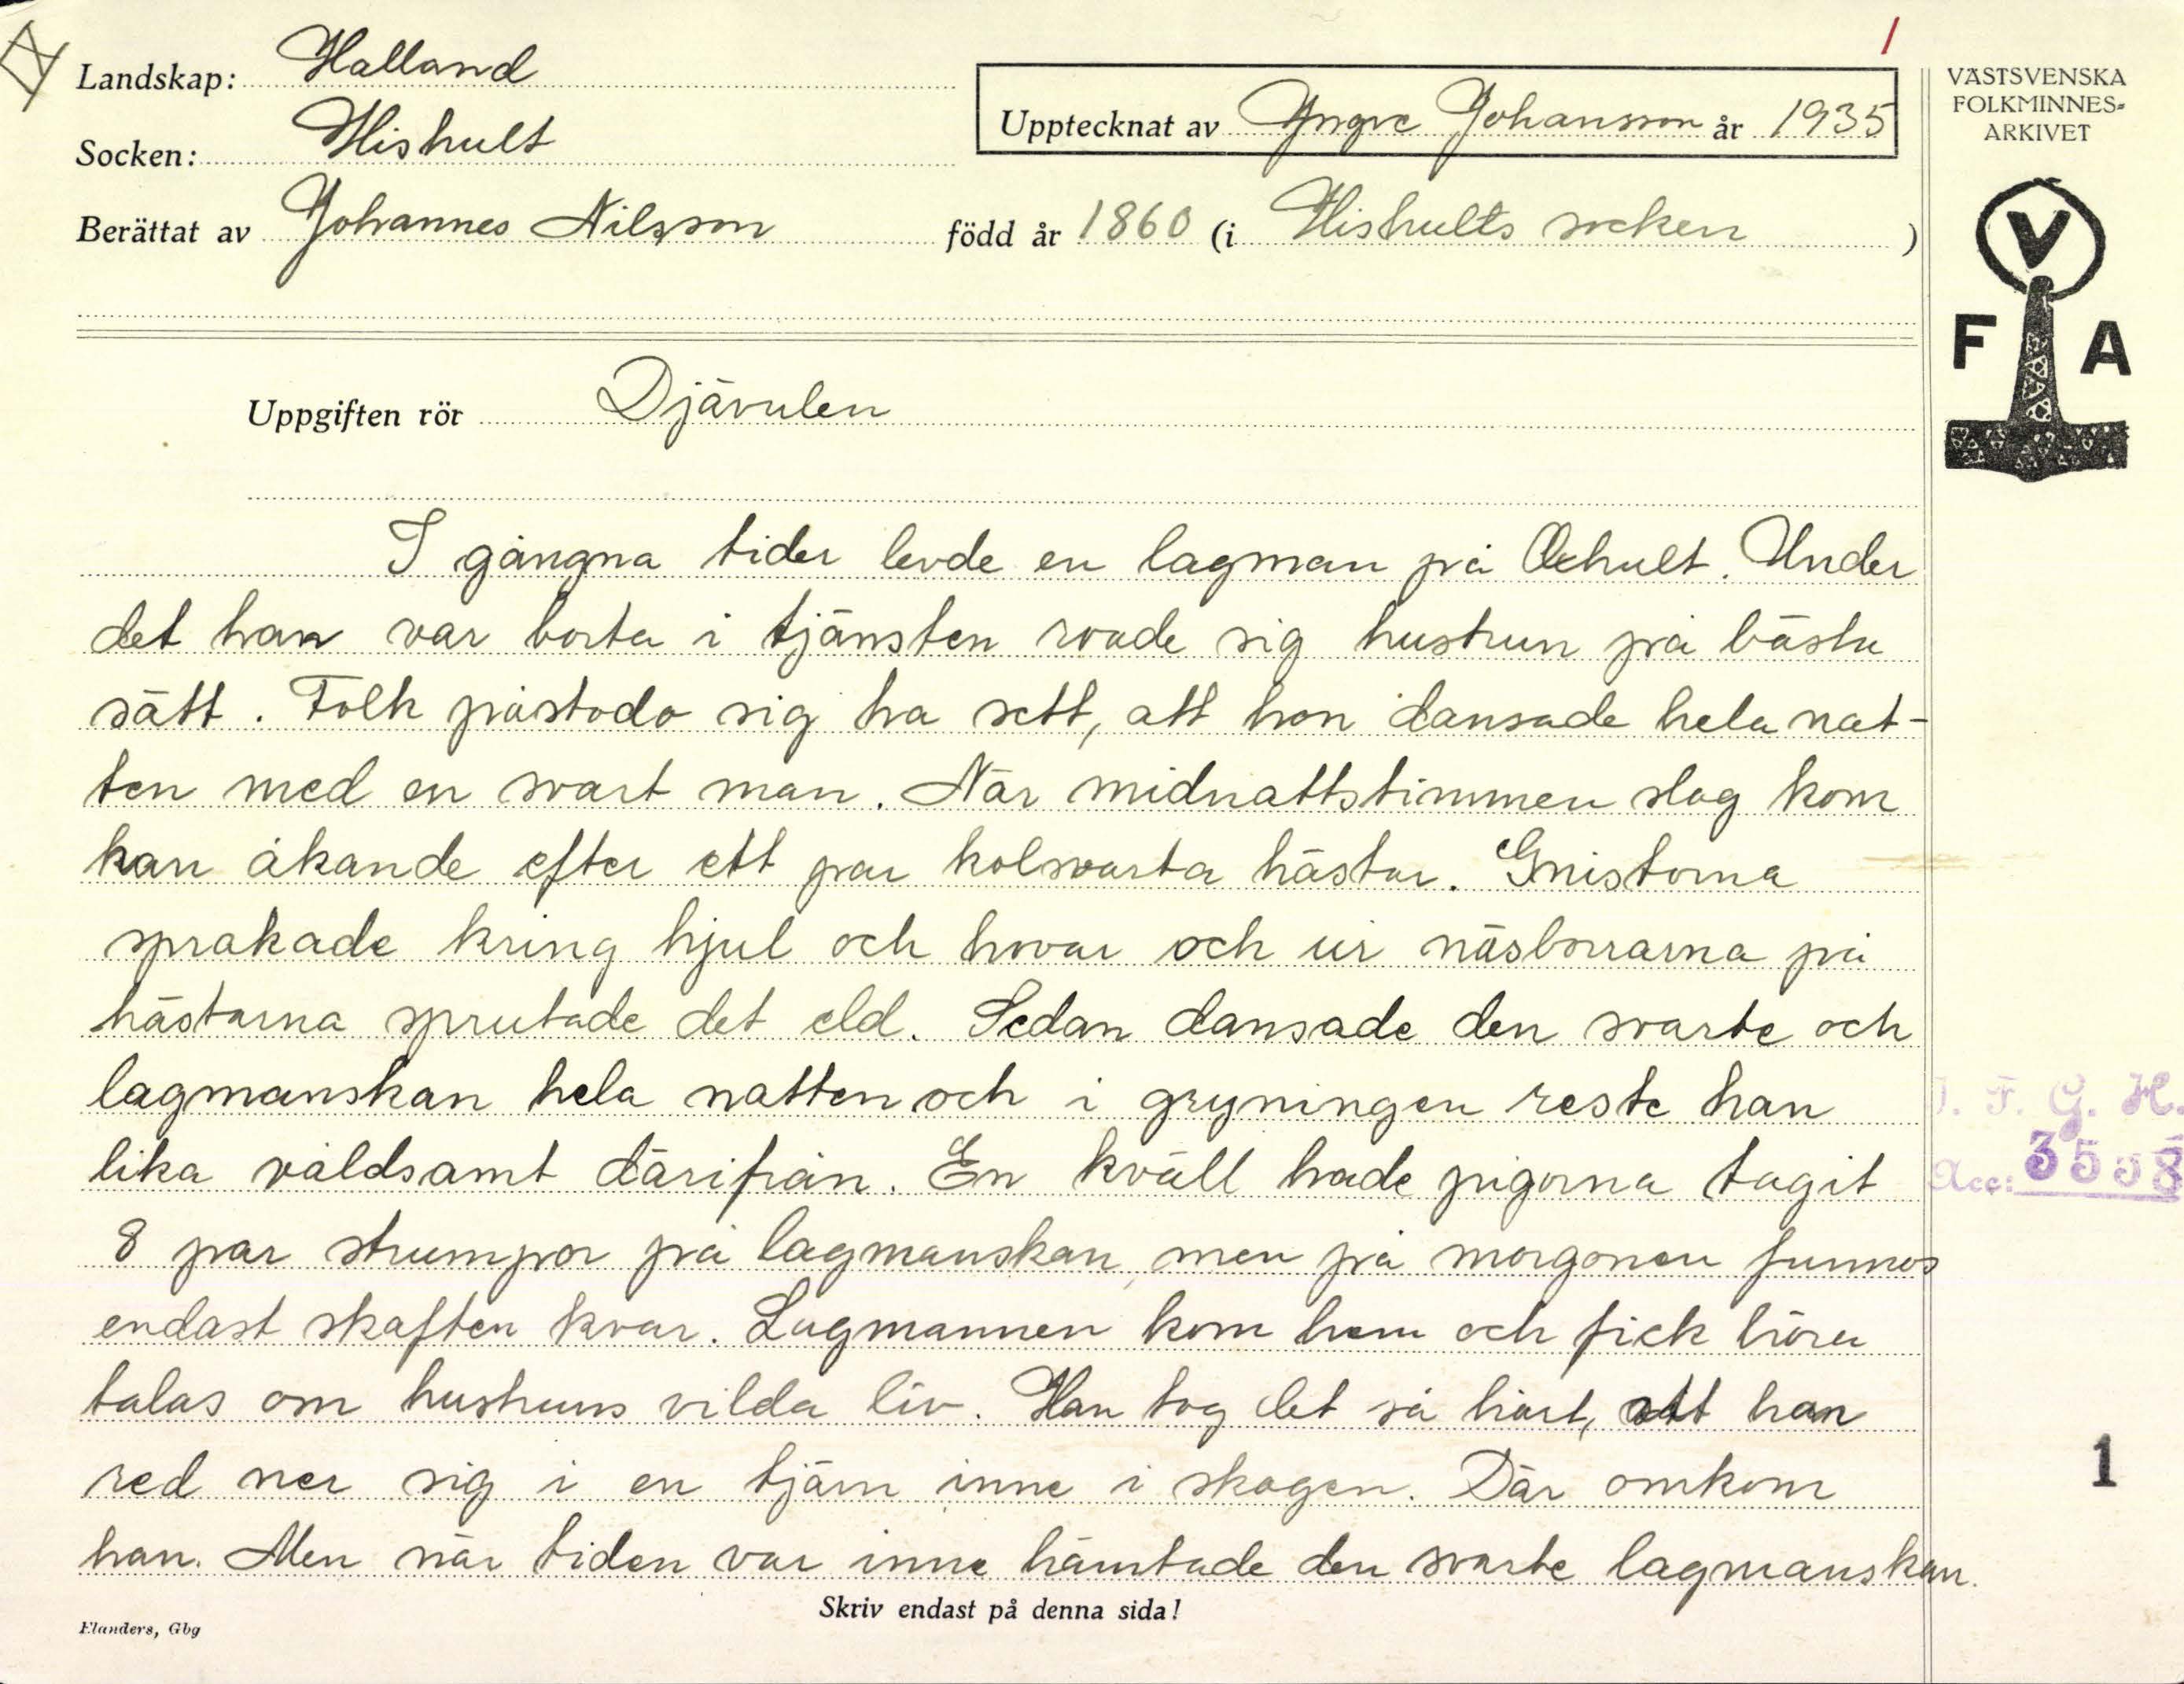 1
Landskap: Halland
Socken: Hishult
Upptecknat av Yngve Johansson år 1935
Berättat av Johannes Nilsson född år 1860 (i Hishults socken )
VÄSTSVENSKA
FOLKMINNES-
ARKIVET
V
F A
Uppgiften rör Djävulen
I gångna tider levde en lagman på Oehult. Under
det han var borta i tjänsten roade sig hustrun på bästa
sätt. Folk påstodo sig ha sett, att hon dansade hela nat-
ten med en svart man. När midnattstimmen slog kom
han åkande efter ett par kolsvarta hästar. Gnistorna
sprakade kring hjul och hovar och ur näsborrarna på
hästarna sprutade det eld. Sedan dansade den svarte och
lagmanskan hela natten och i gryningen reste han
lika våldsamt därifrån. En kväll hade pigorna tagit
8 par strumpor på lagmanskan, men på morgonen funnos
endast skaften kvar. Lagmannen kom hem och fick höra
talas om hustruns vilda liv. Han tog det så hårt, att han
red ner sig i en tjärn inne i skogen. Där omkom
han. Men när tiden var inne hämtade den svarte lagmanskan.
I. F. G. H.
Acc: 3558
1
Skriv endast på denna sida!
Elanders, Gbg